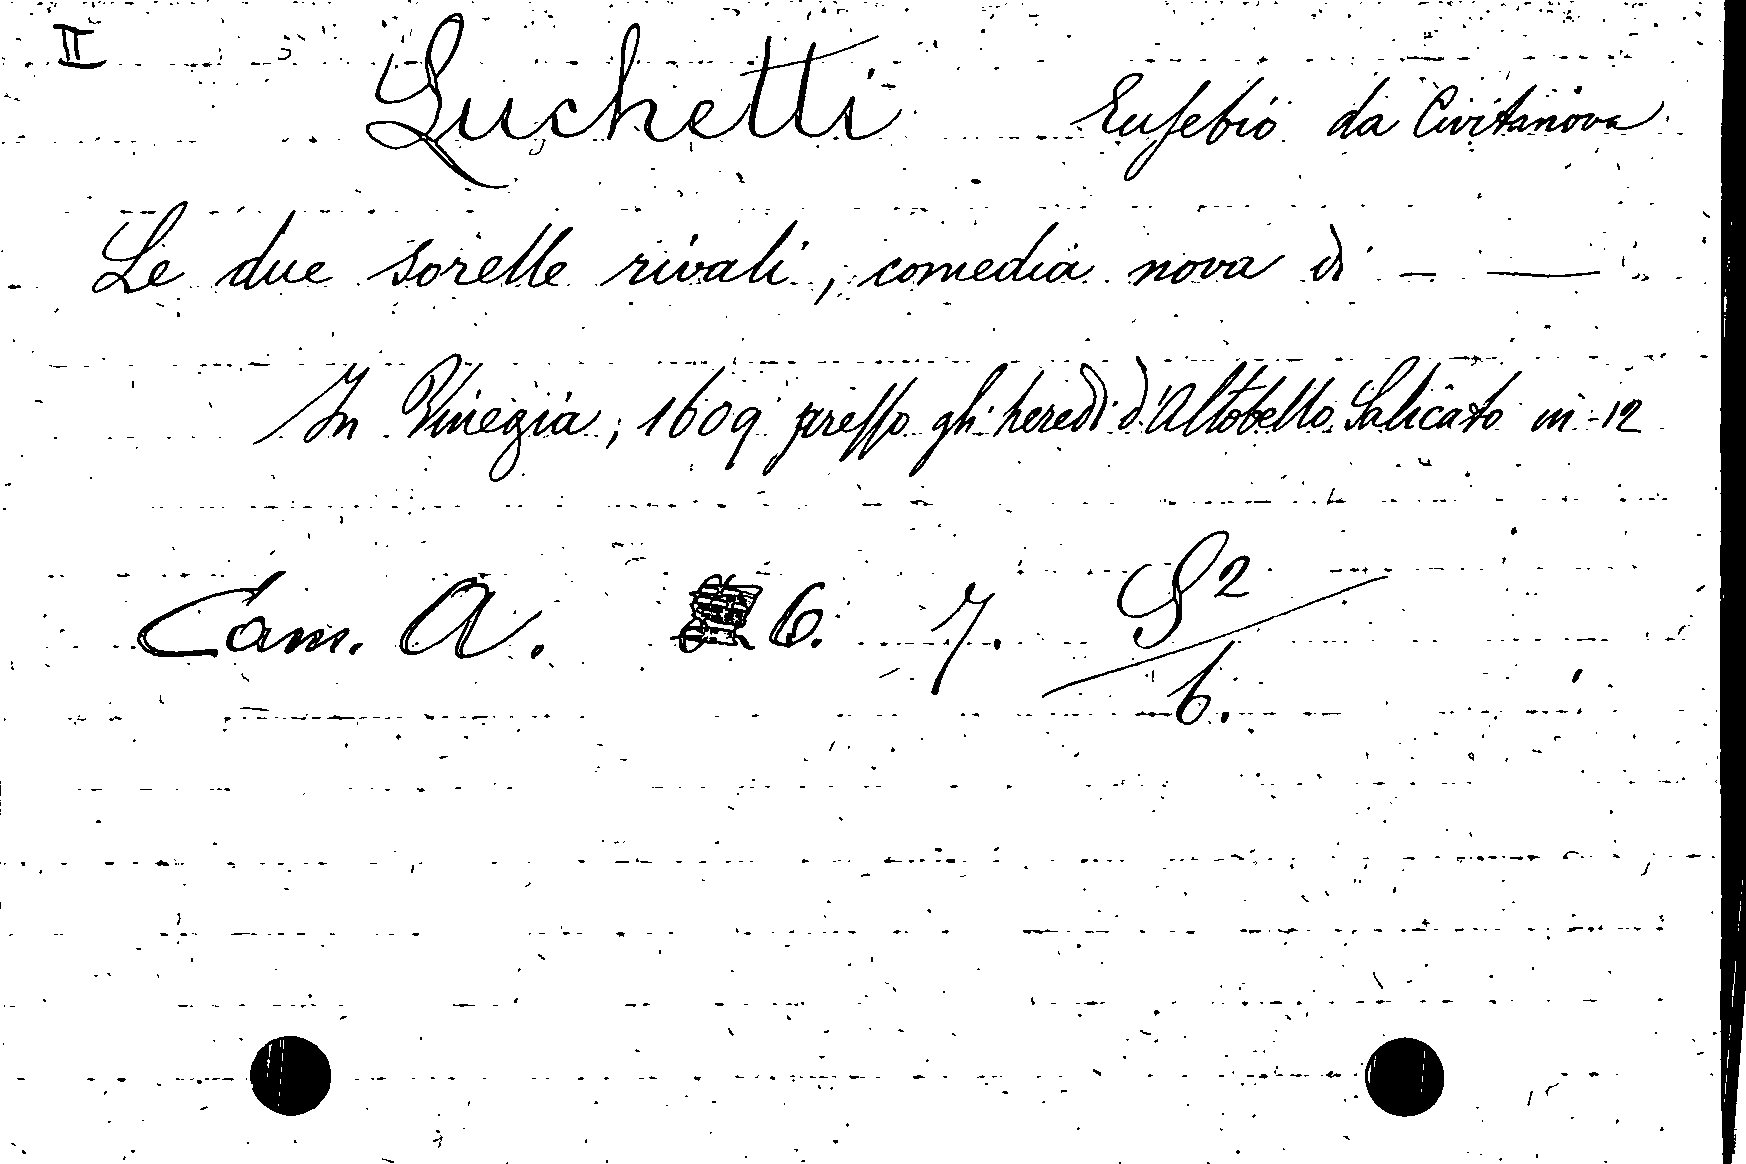 II
Luchetti Eusebio da Civitanova
Le due sorelle rivali, comedia nova di – —
In Vinegia, 1609 presso gli heredi d'Altobello Salicato in-12
Cam. A. 6. 7. S2/6.